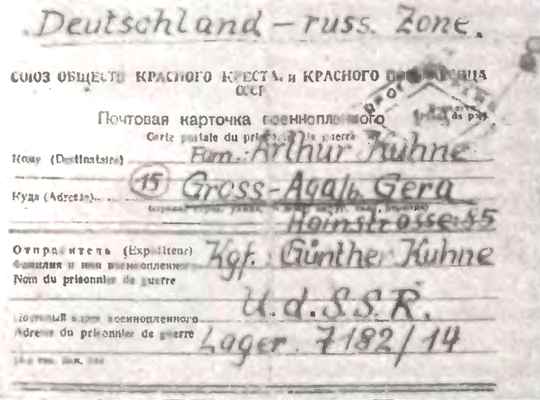 Deutschland – russ. Zone.
СОЮЗ ОБЩЕСТВ КРАСНОГО КРЕСТА и КРАСНОГО
СССР
Почтовая карточка военнопленного
Carte postale du prisonnier de guerre
Кому (Destinataire) Fam.: Arthur Kuhne
15 Gross-Aga/b. Gera
Куда (Adresse)
Hainstrasse 55
Отправитель (Expéditeur) Kgf. Günther Kuhne
Фамилия и имя военнопленного
Nom du prisonnier de guerre
U.d.S.S.R.
Почтовый адрес военнопленного
Adresse du prisonnier de guerre Lager 7182/14